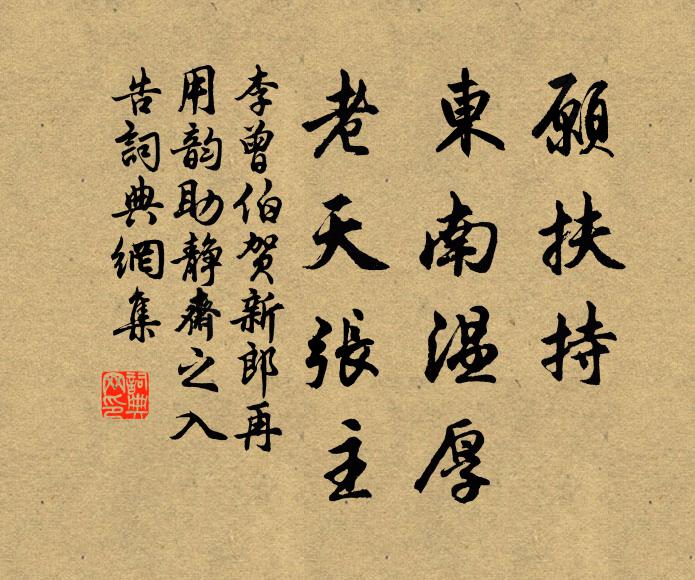 願扶持
東南温厚
老天張主
李曾伯賀新郎再
用韵助靜齋之入
告詞典網集
詞典
网印